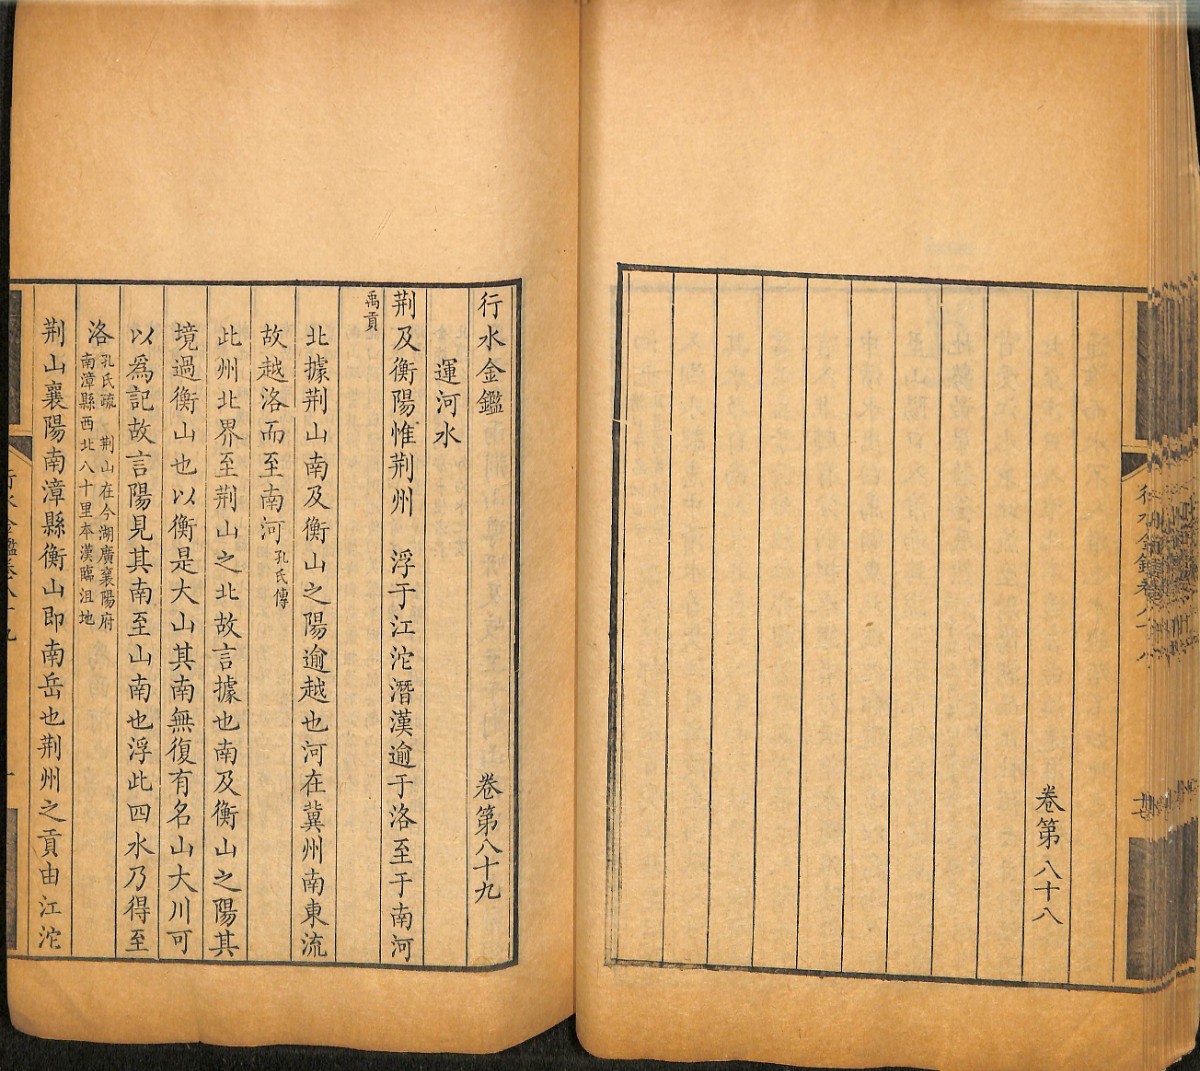 卷第八十八
行水金鑑卷八十八
行水金鑑 卷第八十九
運河水
荆及衡陽惟荆州 浮于江沱潛漢逾于洛至于南河
禹貢
北據荆山南及衡山之陽逾越也河在冀州南東流
故越洛而至南河孔氏傳
此州北界至荆山之北故言據也南及衡山之陽其
境過衡山也以衡是大山其南無復有名山大川可
以爲記故言陽見其南至山南也浮此四水乃得至
洛孔氏疏 荆山在今湖廣襄陽府
南漳縣西北八十里本漢臨沮地
荆山襄陽南漳縣衡山即南岳也荆州之貢由江沱
行水金鑑卷八十九